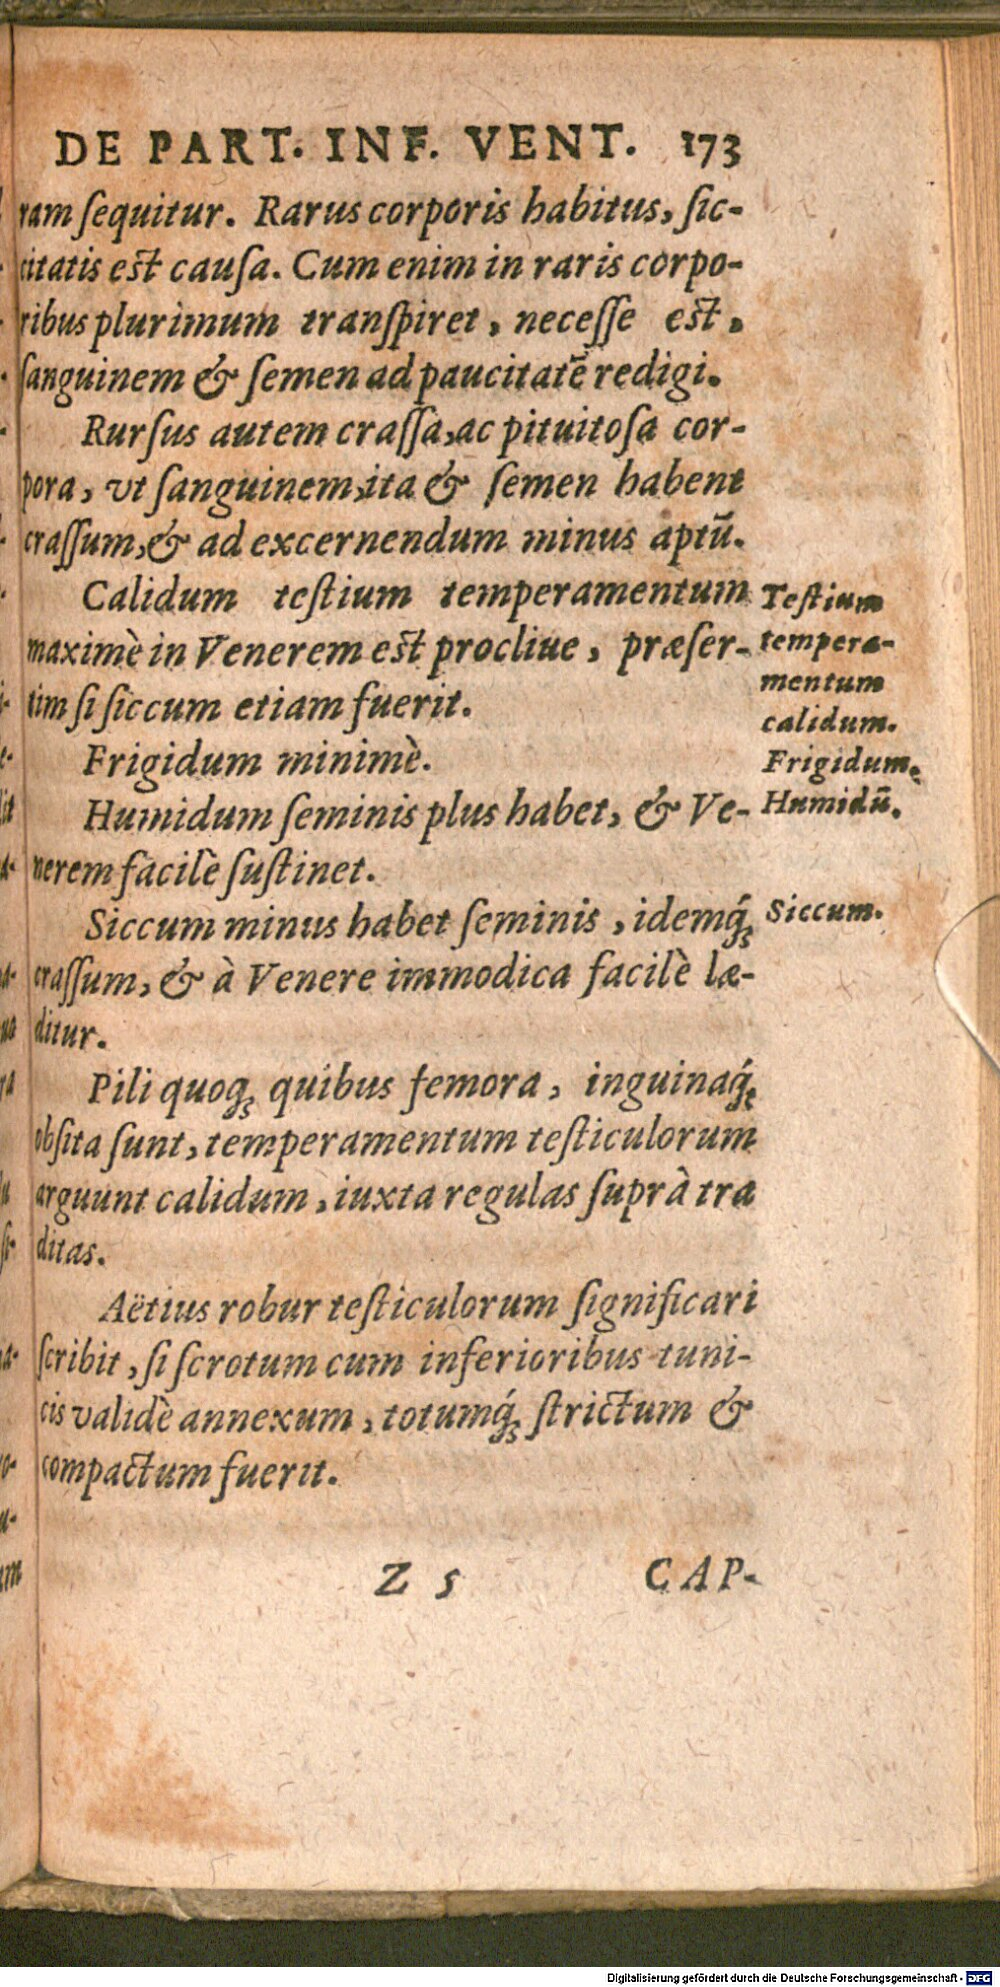 DE PART. INF. VENT. 173
ram ſequitur. Rarus corporis habitus, ſic-
citatis est cauſa. Cum enim in raris corpo-
ribus plurimum tranſpiret, neceſſe est,
ſanguinem & ſemen ad paucitatē redigi.
Rurſus autem craſſa, ac pituitoſa cor-
pora, vt ſanguinem, ita & ſemen habent
craſſum, & ad excernendum minus aptū.
Calidum teſtium temperamentum
maximè in Venerem est procliue, præſer-
tim ſi ſiccum etiam fuerit.
Frigidum minimè.
Humidum ſeminis plus habet, & Ve-
nerem facilè ſuſtinet.
Siccum minus habet ſeminis, idemq́;
craſſum, & à Venere immodica facilè læ-
ditur.
Pili quoq; quibus femora, inguinaq́;
obſita ſunt, temperamentum teſticulorum
arguunt calidum, iuxta regulas ſuprà tra
ditas.
Aëtius robur teſticulorum ſignificari
ſcribit, ſi ſcrotum cum inferioribus tuni-
cis validè annexum, totumq́; ſtrictum &
compactum fuerit.
Teſtium
tempera-
mentum
calidum.
Frigidum.
Humidū.
Siccum.
Z 5 CAP-
Digitalisierung gefördert durch die Deutsche Forschungsgemeinschaft - DFG